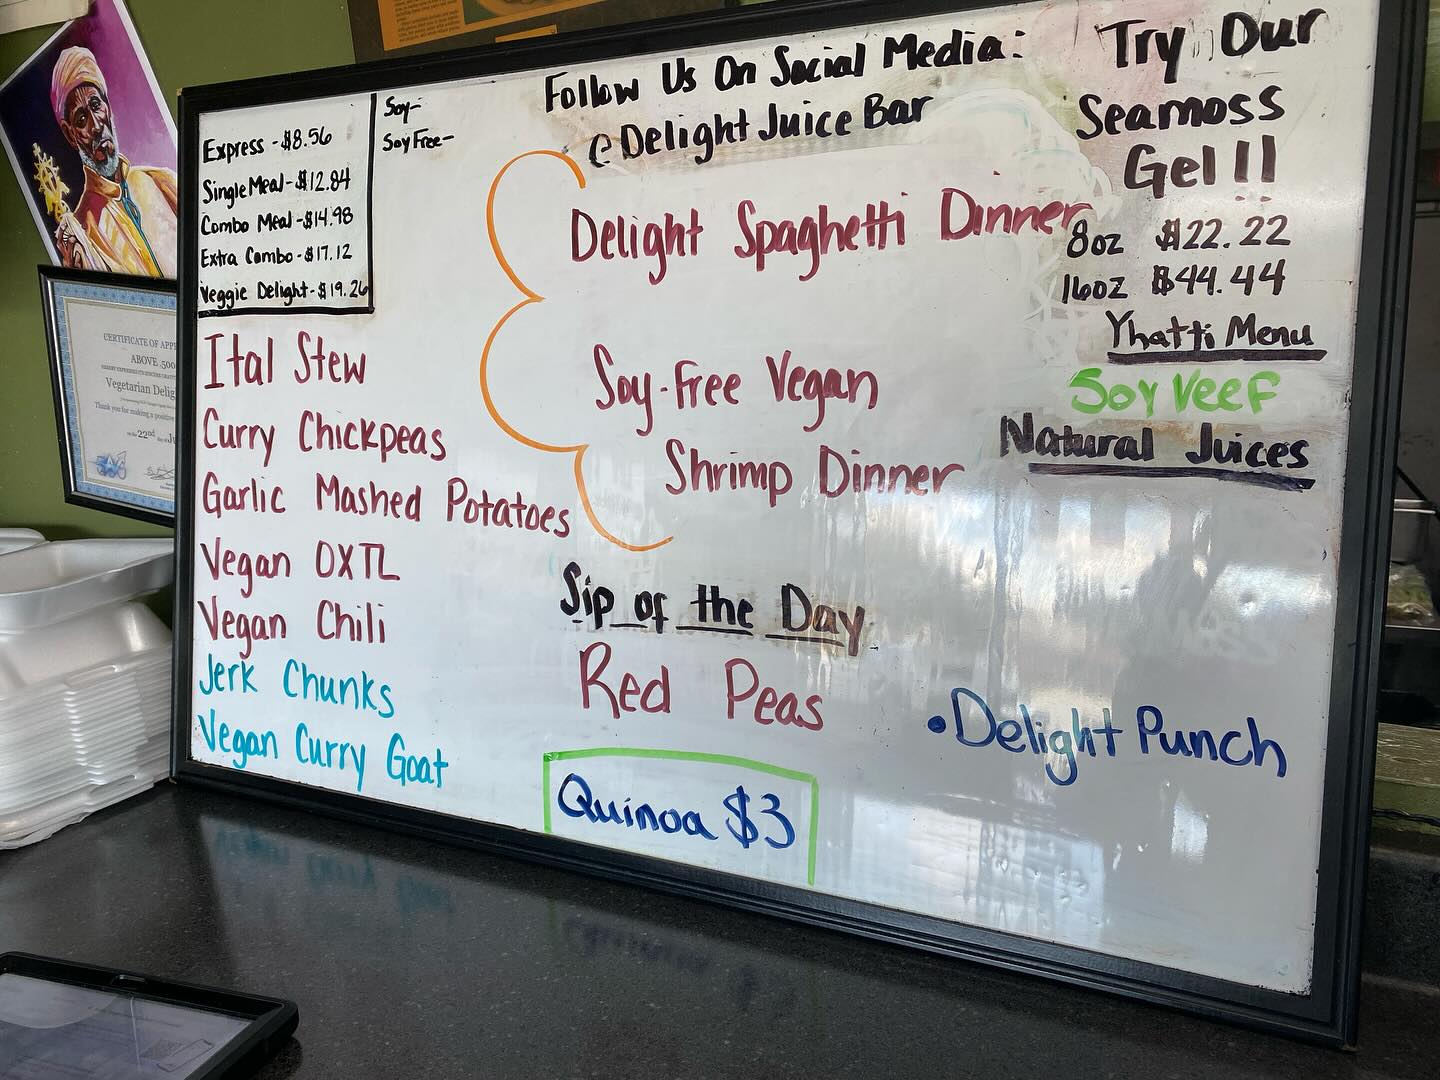 Express - $8.56
Single Meal - $12.84
Combo Meal - $14.98
Extra Combo - $17.12
Veggie Delight - $19.26
Soy-
Soy Free-
Follow Us On Social Media:
@ Delight Juice Bar
Try Our
Seamoss
Gel!!
8oz $22.22
16oz $44.44
Yhatti Menu
Soy Veef
Natural Juices
• Delight Punch
Ital Stew
Curry Chickpeas
Garlic Mashed Potatoes
Vegan OXTL
Vegan Chili
Jerk Chunks
Vegan Curry Goat
Delight Spaghetti Dinner
Soy-Free Vegan
Shrimp Dinner
Sip of the Day
Red Peas
Quinoa $3
CERTIFICATE OF APP
ABOVE 500
Vegetarian Delig
Thank you for making a positive
22nd